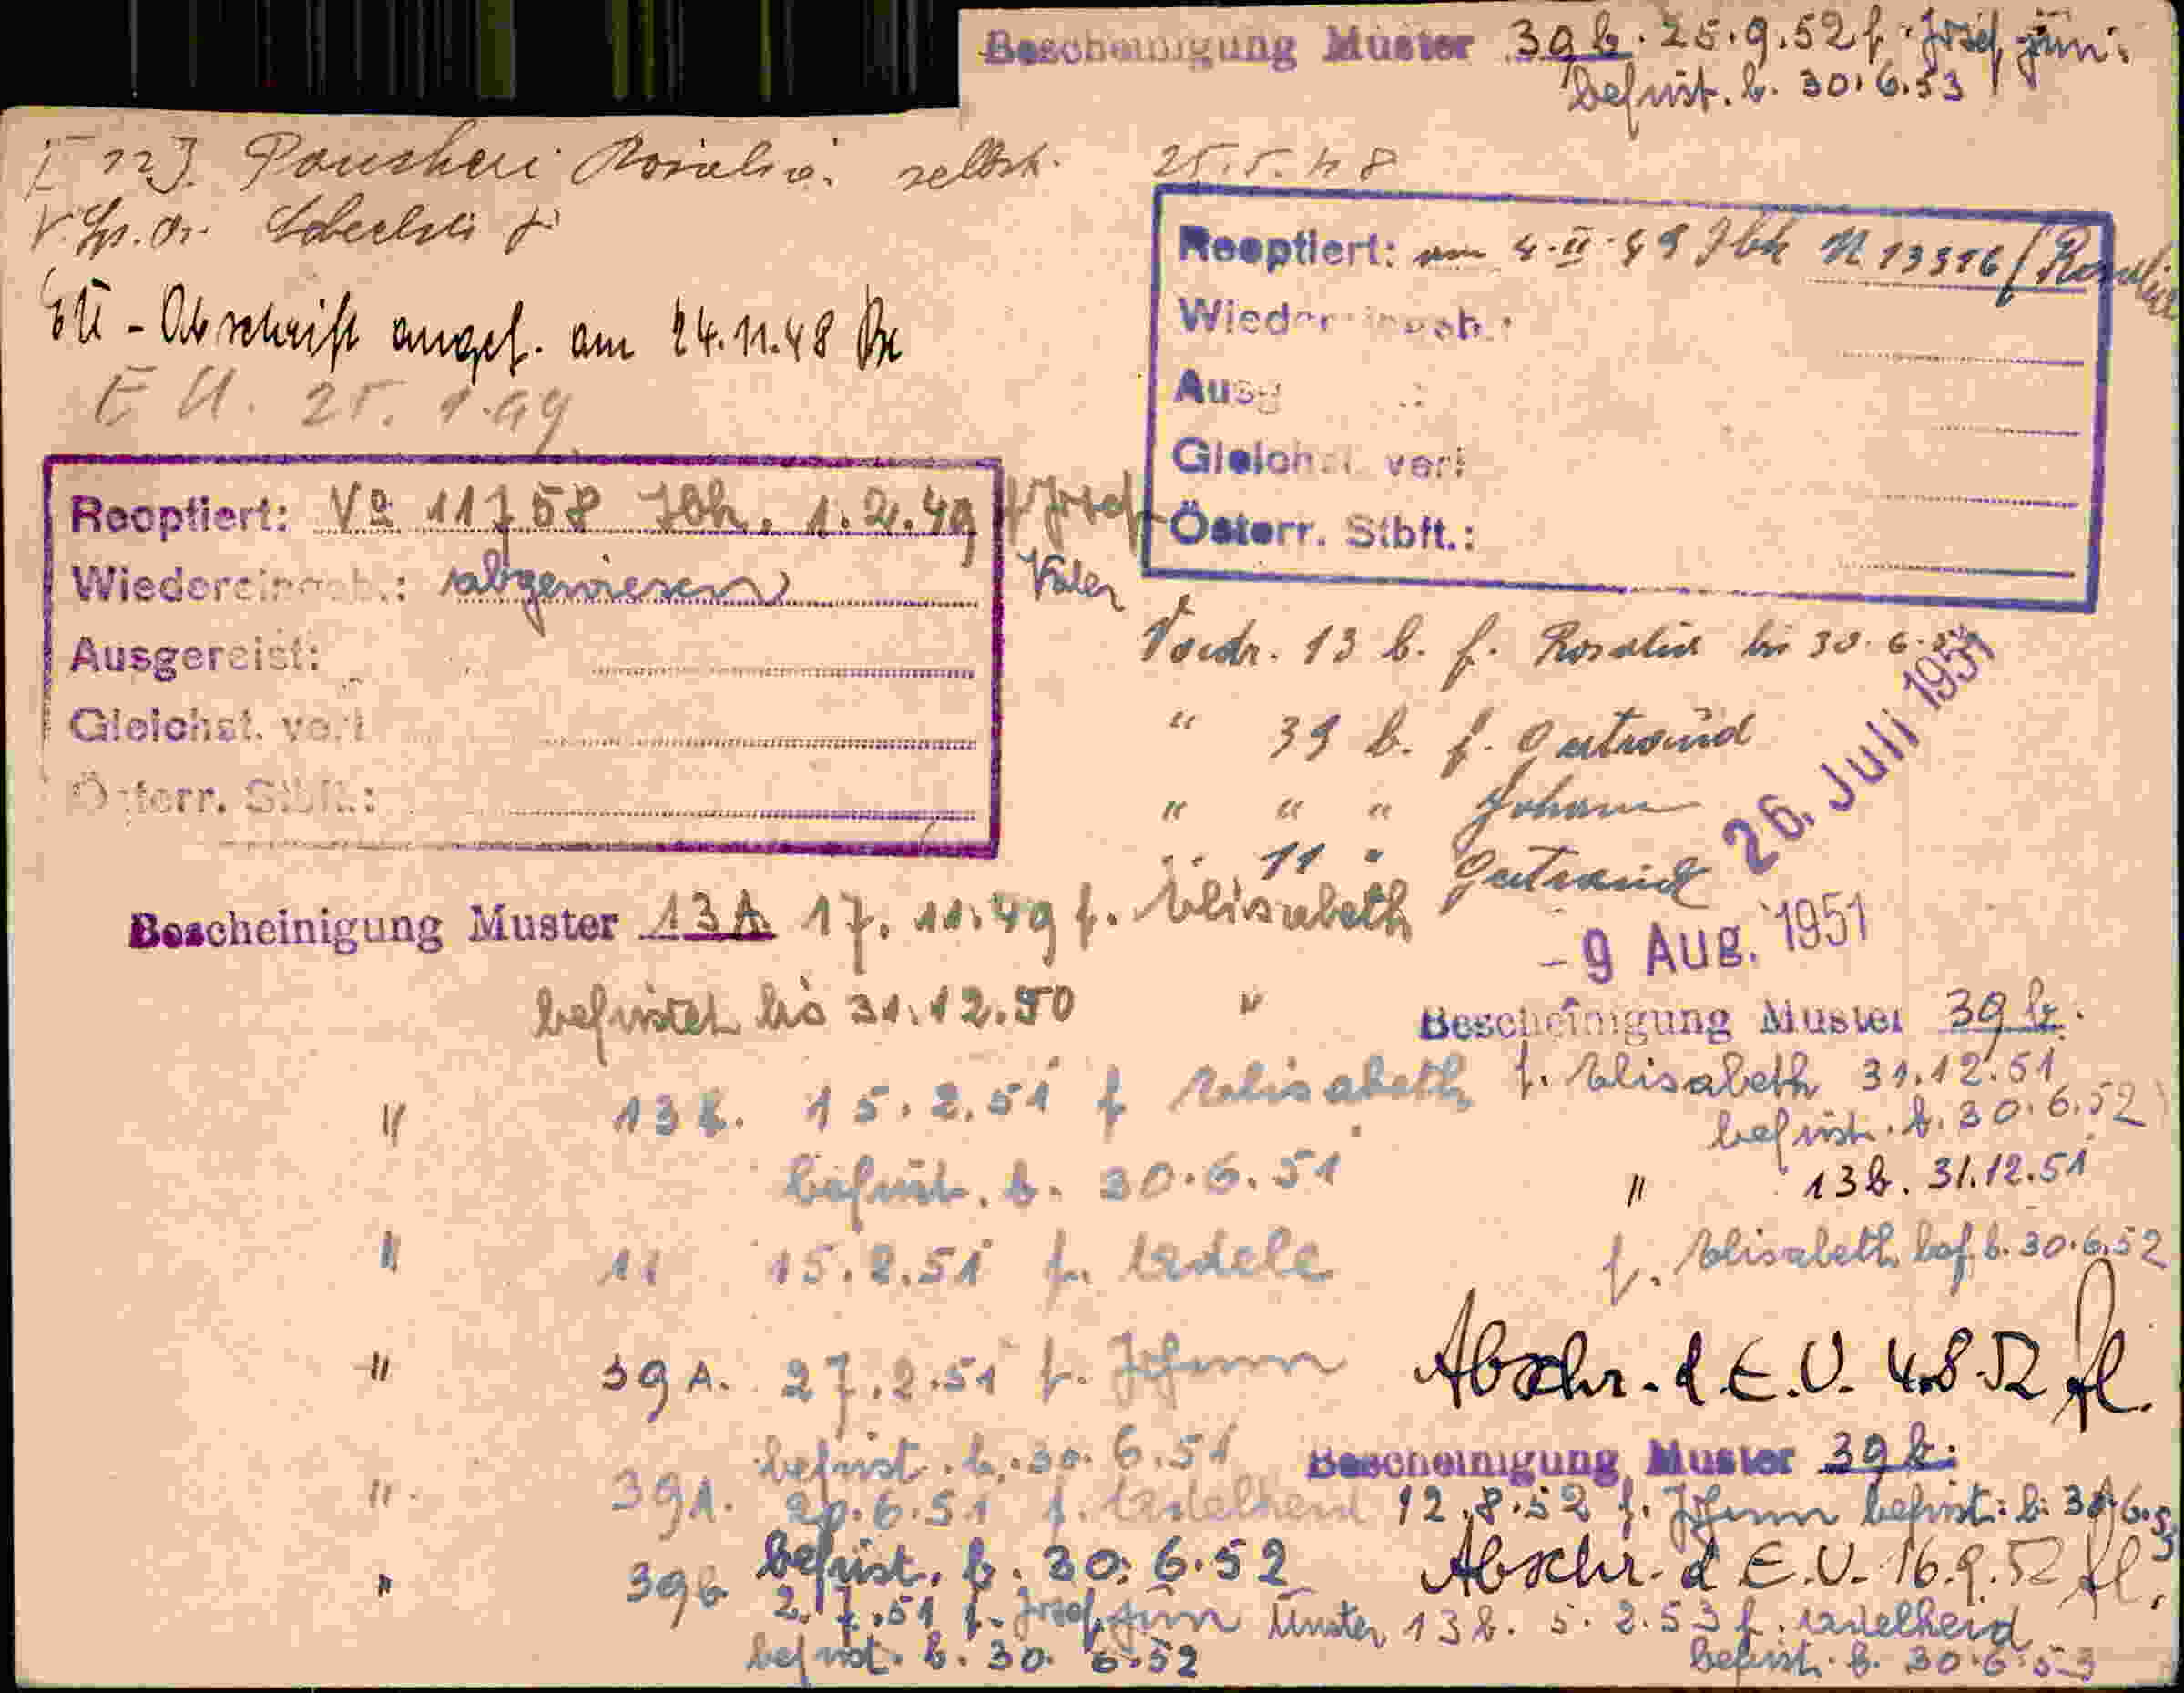 Bescheinigung Muster 39 b. 25.9.52 f. Josef jun.
befrist. b. 30.6.53
Rosalia. selbst. 25.5.48
EU - Abschrift angef. am 24.11.48
E U. 25. 1.49
Reoptiert: am 4.II.49 Ibk N 13916 / Rosalia
Wiedereingeb.:
Ausg :
Gleichst. verl
Österr. Stbft.:
Reoptiert: No 11758 Ibk. 1.2.49 f Josef
Wiedereingeb.: abgewiesen Vater
Ausgereist:
Gleichst. verl
Österr. Stbft.:
Vordr. 13 b. f. Rosalia bis 30.6.
" 39 b. f. Gertraud
" " " Johann
" 11 " Gertraud
26. Juli 1951
- 9 Aug. 1951
Bescheinigung Muster 13A 17.11.49 f. Elisabeth
befristet bis 31.12.50 "
" 13 b. 15.2.51 f Elisabeth
befrist. b. 30.6.51
" 11 15.2.51 f. Adele
" 39 A. 27.2.51 f. Johann
befrist. b. 30.6.51
" 39A. 20.6.51 f. Adelheid
befrist. b. 30.6.52
" 39b 2.7.51 f. Josef jun
befrist. b. 30.6.52
Bescheinigung Muster 39 b.
f. Elisabeth 31.12.51
befrist. b. 30.6.52
" 13b. 31.12.51
f. Elisabeth bef. b. 30.6.52
Abschr. d. E.U. 4.8.52 fl.
Bescheinigung Muster 39 b.
12.8.52 f. Johann befrist. b. 30.6.53
Abschr. d E.U. 16.9.52 fl.
Muster 13 b. 5.2.53 f. Adelheid
befrist. b. 30.6.53